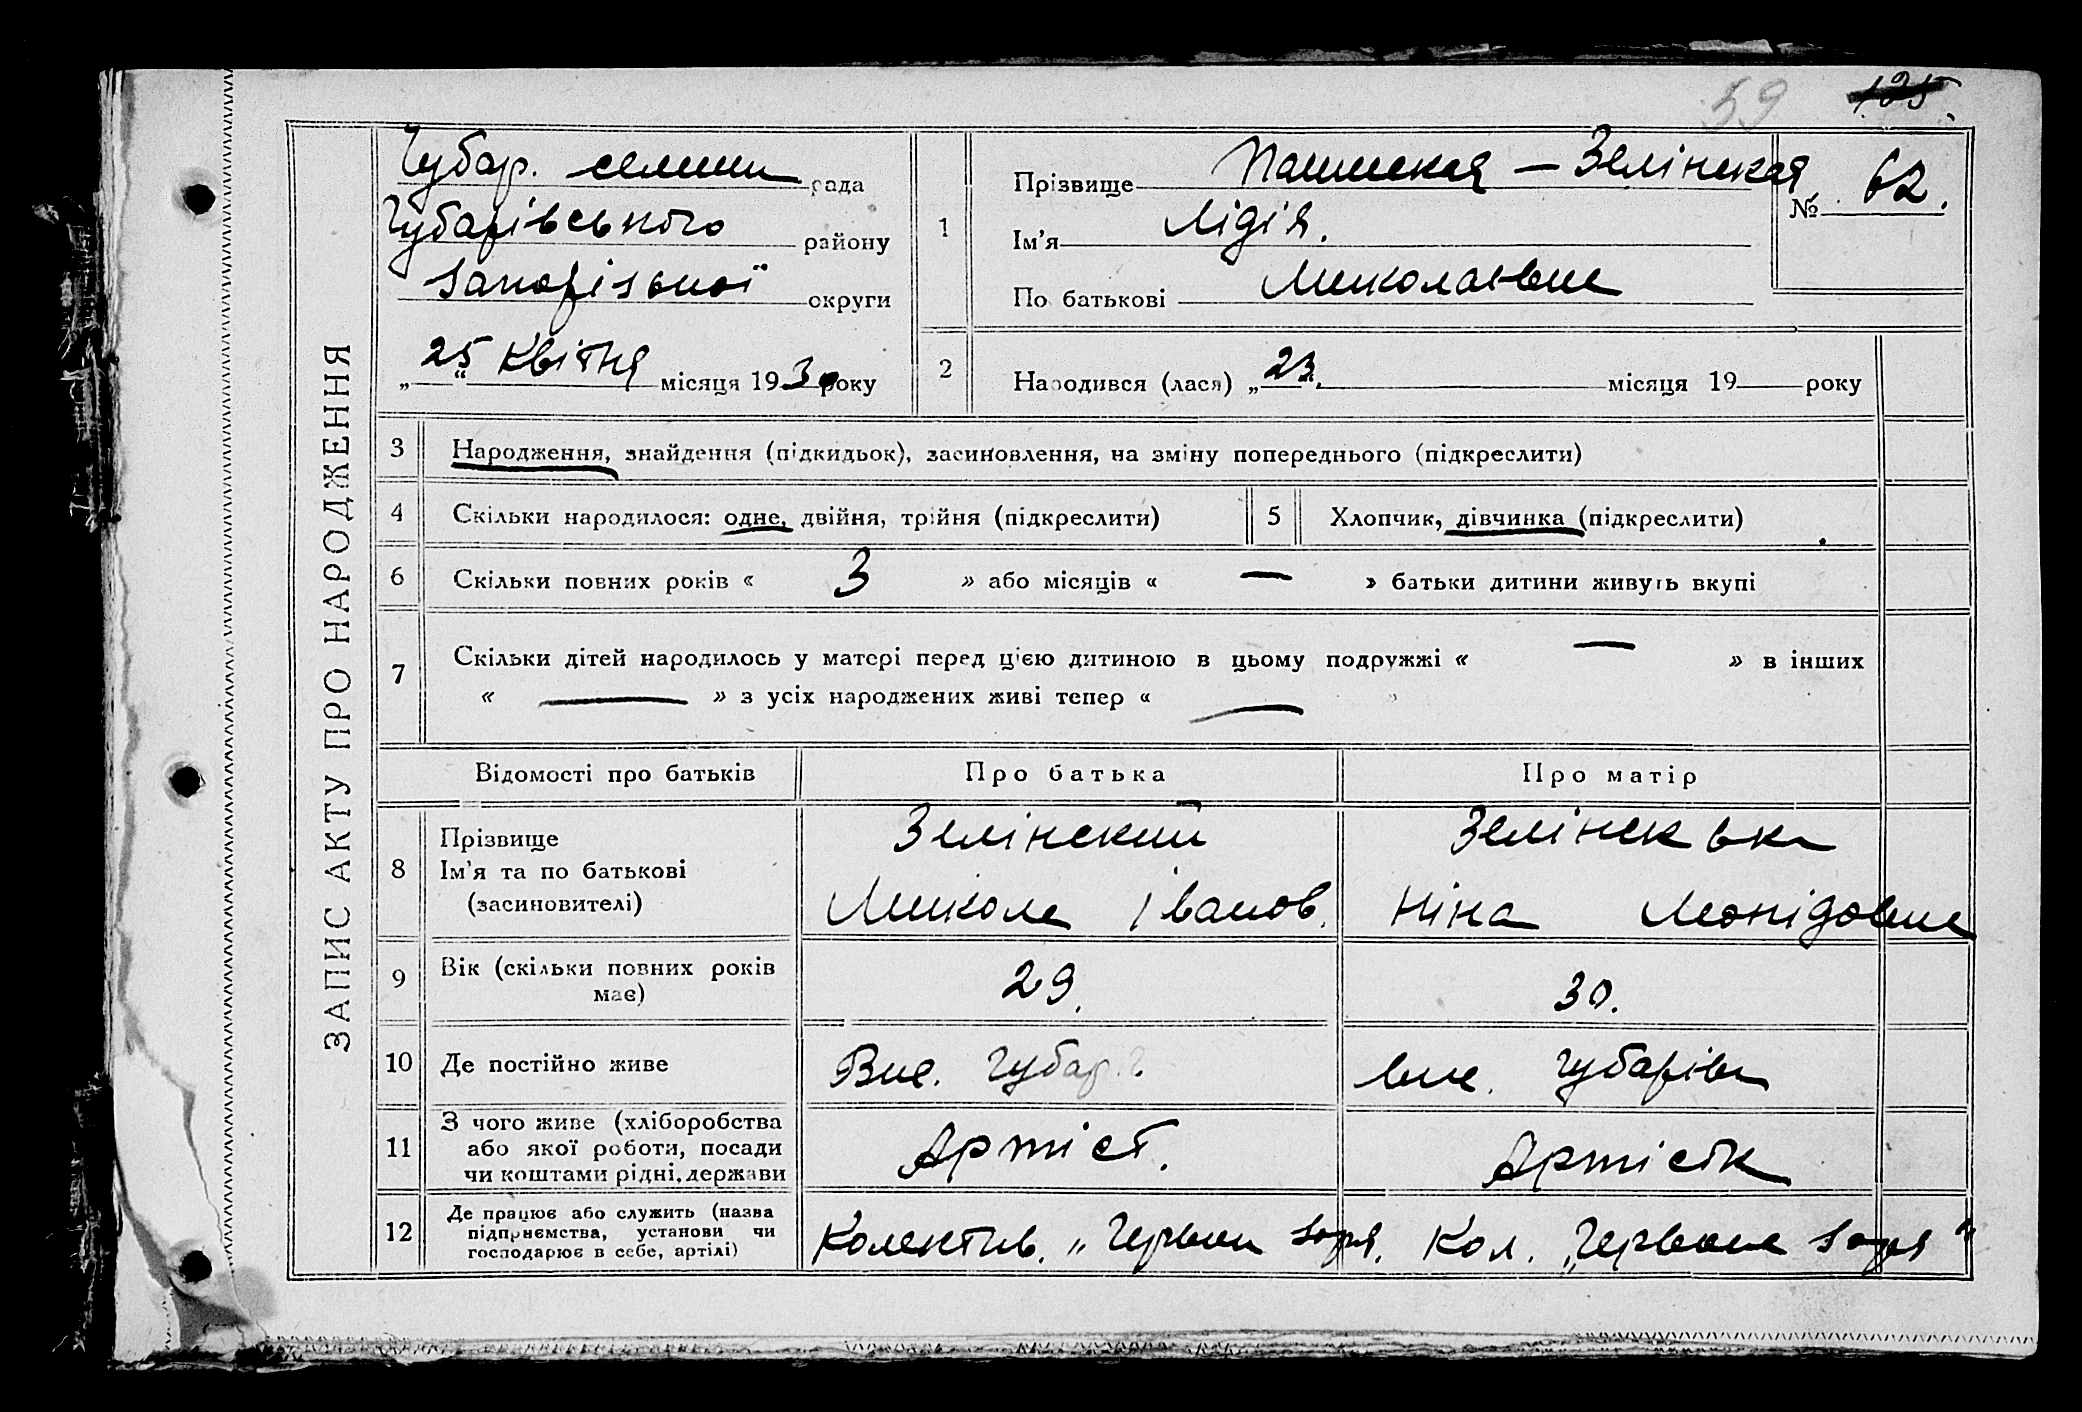 59 125.
Чубар. селищн рада
Чубарівського району
Запорізької округи
„25“ Квітня місяця 1930 року
1
Прізвище Пашинская – Зелінская
№ 62.
Ім'я Лідія.
По батькові Миколаївна
2
Народився (лася) „23“. місяця 19 року
ЗАПИС АКТУ ПРО НАРОДЖЕННЯ
3 Народження, знайдення (підкидьок), засиновлення, на зміну попереднього (підкреслити)
4 Скільки народилося: одне, двійня, трійня (підкреслити) 5 Хлопчик, дівчинка (підкреслити)
6 Скільки повних років « 3 » або місяців « — » батьки дитини живуть вкупі
7 Скільки дітей народилось у матері перед цією дитиною в цьому подружжі « — » в інших
« — » з усіх народжених живі тепер « — »
Відомості про батьків Про батька Про матір
8 Прізвище Зелінский Зелінська
Ім'я та по батькові Микола Іванов. Ніна Леонідовна
(засиновителі)
9 Вік (скільки повних років 29. 30.
має)
10 Де постійно живе Вис. Чубар. вис. Чубарівка
11 З чого живе (хліборобства
або якої роботи, посади Артіст. Артістка
чи коштами рідні, держави
12 Де працює або служить (назва
підприємства, установи чи Колектив. „Червона Зоря. Кол. „Червона Зоря“
господарює в себе, артілі)